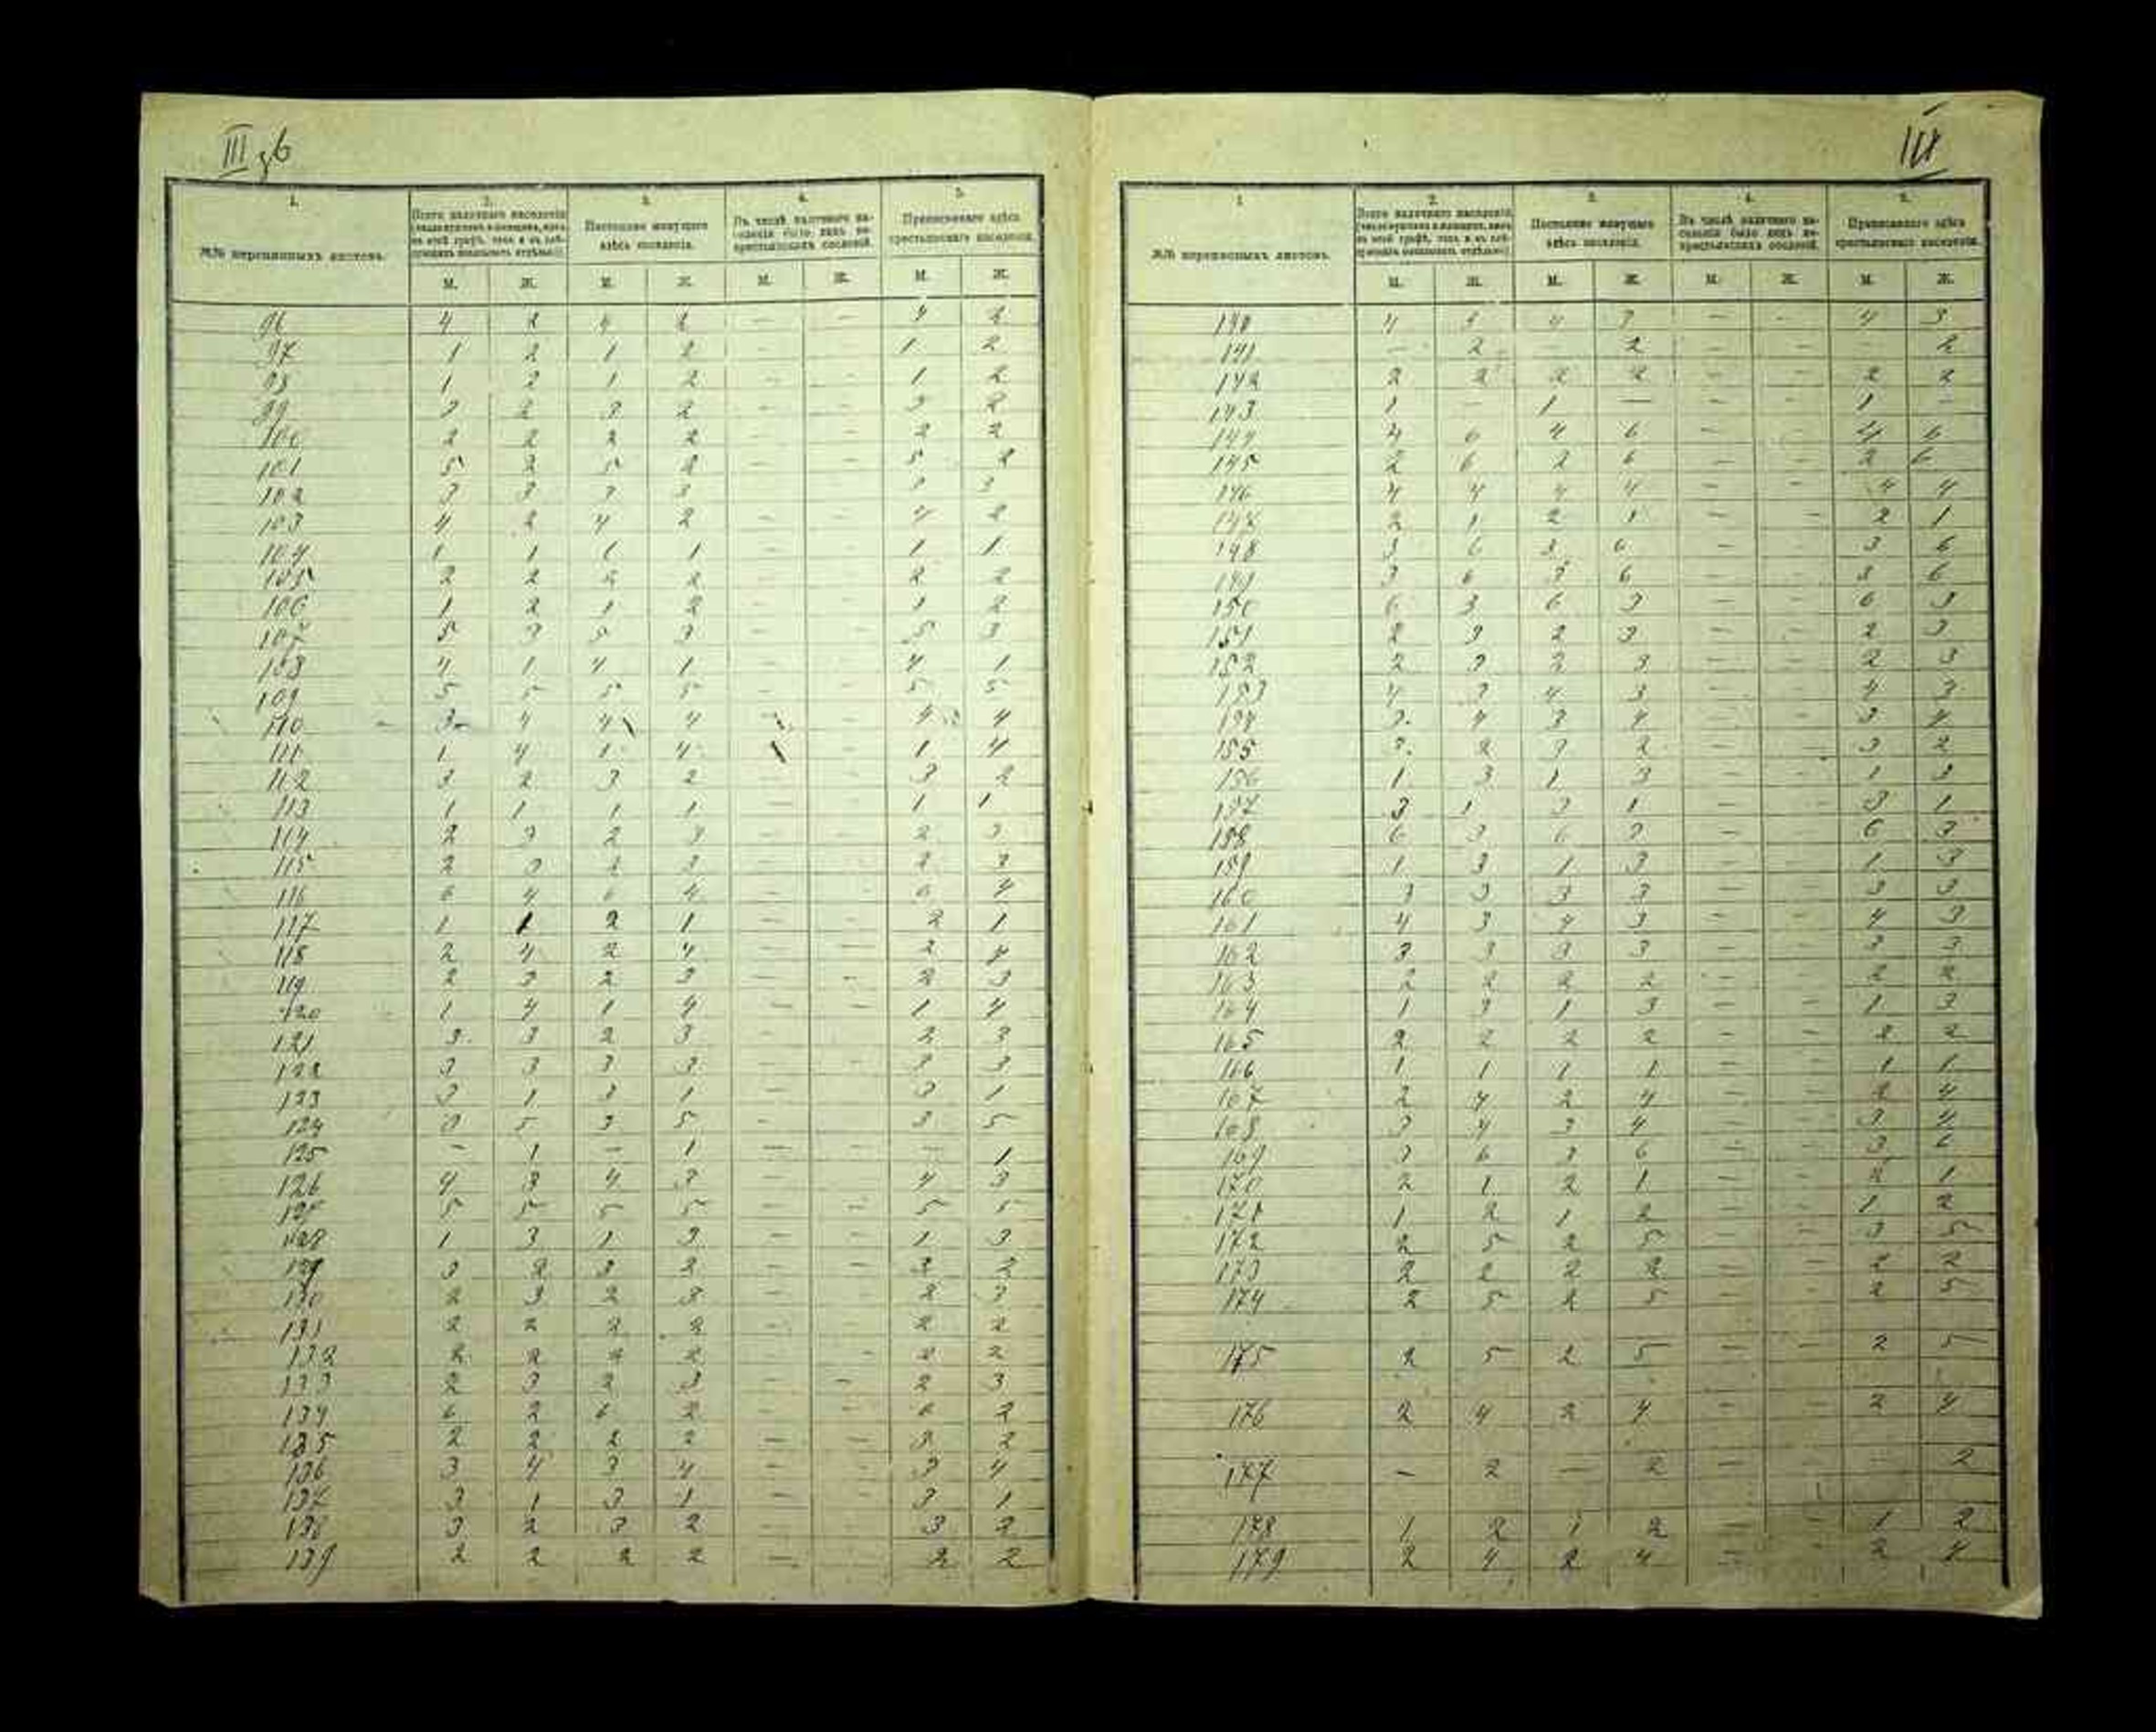 III
1.
2.
3.
4.
5.
№№ переписныхъ листовъ.
Всего наличнаго населенія
Постоянно живущаго здѣсь населенія.
Въ числѣ наличнаго населенія было лицъ некрестьянскихъ сословій.
Приписаннаго здѣсь крестьянскаго населенія.
М. Ж. М. Ж. М. Ж. М. Ж.
96 4 2 4 2 — — 4 2
97 1 2 1 2 — — 1 2
98 1 2 1 2 — — 1 2
99 3 2 3 2 — — 3 2
100 2 2 2 2 — — 2 2
101 5 2 5 2 — — 5 2
102 3 3 3 3 — — 3 3
103 4 2 4 2 — — 4 2
104 1 1 1 1 — — 1 1
105 2 2 2 2 — — 2 2
106 1 2 1 2 — — 1 2
107 5 3 5 3 — — 5 3
108 4 1 4 1 — — 4 1
109 5 5 5 5 — — 5 5
110 3 4 4 4 — — 4 4
111 1 4 1 4 — 1 4
112 3 2 3 2 — — 3 2
113 1 1 1 1 — — 1 1
114 2 3 2 3 — — 2 3
115 2 3 2 3 — — 2 3
116 6 4 6 4 — — 6 4
117 1 1 2 1 — — 2 1
118 2 4 2 4 — — 2 4
119 2 3 2 3 — — 2 3
120 1 4 1 4 — — 1 4
121 3 3 2 3 — — 2 3
122 3 3 3 3 — — 3 3
123 3 1 3 1 — — 3 1
124 3 5 3 5 — — 3 5
125 — 1 — 1 — — — 1
126 4 3 4 3 — — 4 3
127 5 5 5 5 — — 5 5
128 1 3 1 3 — — 1 3
129 3 2 3 2 — — 3 2
130 2 3 2 3 — — 2 3
131 2 2 2 2 — — 2 2
132 2 2 2 2 — — 2 2
133 2 3 2 3 — — 2 3
134 6 2 6 2 — — 6 2
135 2 2 2 2 — — 3 2
136 3 4 3 4 — — 3 4
137 3 1 3 1 — — 3 1
138 3 2 3 2 — — 3 2
139 2 2 2 2 — — 2 2
1
2.
3.
4.
5.
№№ переписныхъ листовъ.
Всего наличнаго населенія
Постоянно живущаго здѣсь населенія.
Въ числѣ наличнаго населенія было лицъ некрестьянскихъ сословій.
Приписаннаго здѣсь крестьянскаго населенія.
М. Ж. М. Ж. М. Ж. М. Ж.
140 4 3 4 3 — — 4 3
141 — 2 — 2 — — 2
142 2 2 2 2 — — 2 2
143 1 — 1 — — — 1 —
144 4 6 4 6 — — 4 6
145 2 6 2 6 — — 2 6
146 4 4 4 4 — — 4 4
147 2 1 2 1 — — 2 1
148 3 6 3 6 — — 3 6
149 3 6 3 6 — — 3 6
150 6 3 6 3 — — 6 3
151 2 3 2 3 — — 2 3
152 2 3 2 3 — — 2 3
153 4 3 4 3 — — 4 3
154 3 4 3 4 — — 3 4
155 3 2 3 2 — — 3 2
156 1 3 1 3 — — 1 3
157 3 1 3 1 — — 3 1
158 6 3 6 3 — — 6 3
159 1 3 1 3 — — 1 3
160 3 3 3 3 — — 3 3
161 4 3 4 3 — — 4 3
162 3 3 3 3 — — 3 3
163 2 2 2 2 — — 2 2
164 1 3 1 3 — — 1 3
165 2 2 2 2 — — 2 2
166 1 1 1 1 — — 1 1
167 2 4 2 4 — — 2 4
168 3 4 3 4 — — 3 4
169 3 6 3 6 — — 3 6
170 2 1 2 1 — — 2 1
171 1 2 1 2 — — 1 2
172 2 5 2 5 — — 3 5
173 2 2 2 2 — — 2 2
174 2 5 2 5 — — 2 5
175 2 5 2 5 — — 2 5
176 2 4 2 4 — — 2 4
177 — 2 — 2 — — — 2
178 1 2 1 2 — — 1 2
179 2 4 2 4 — — 2 4